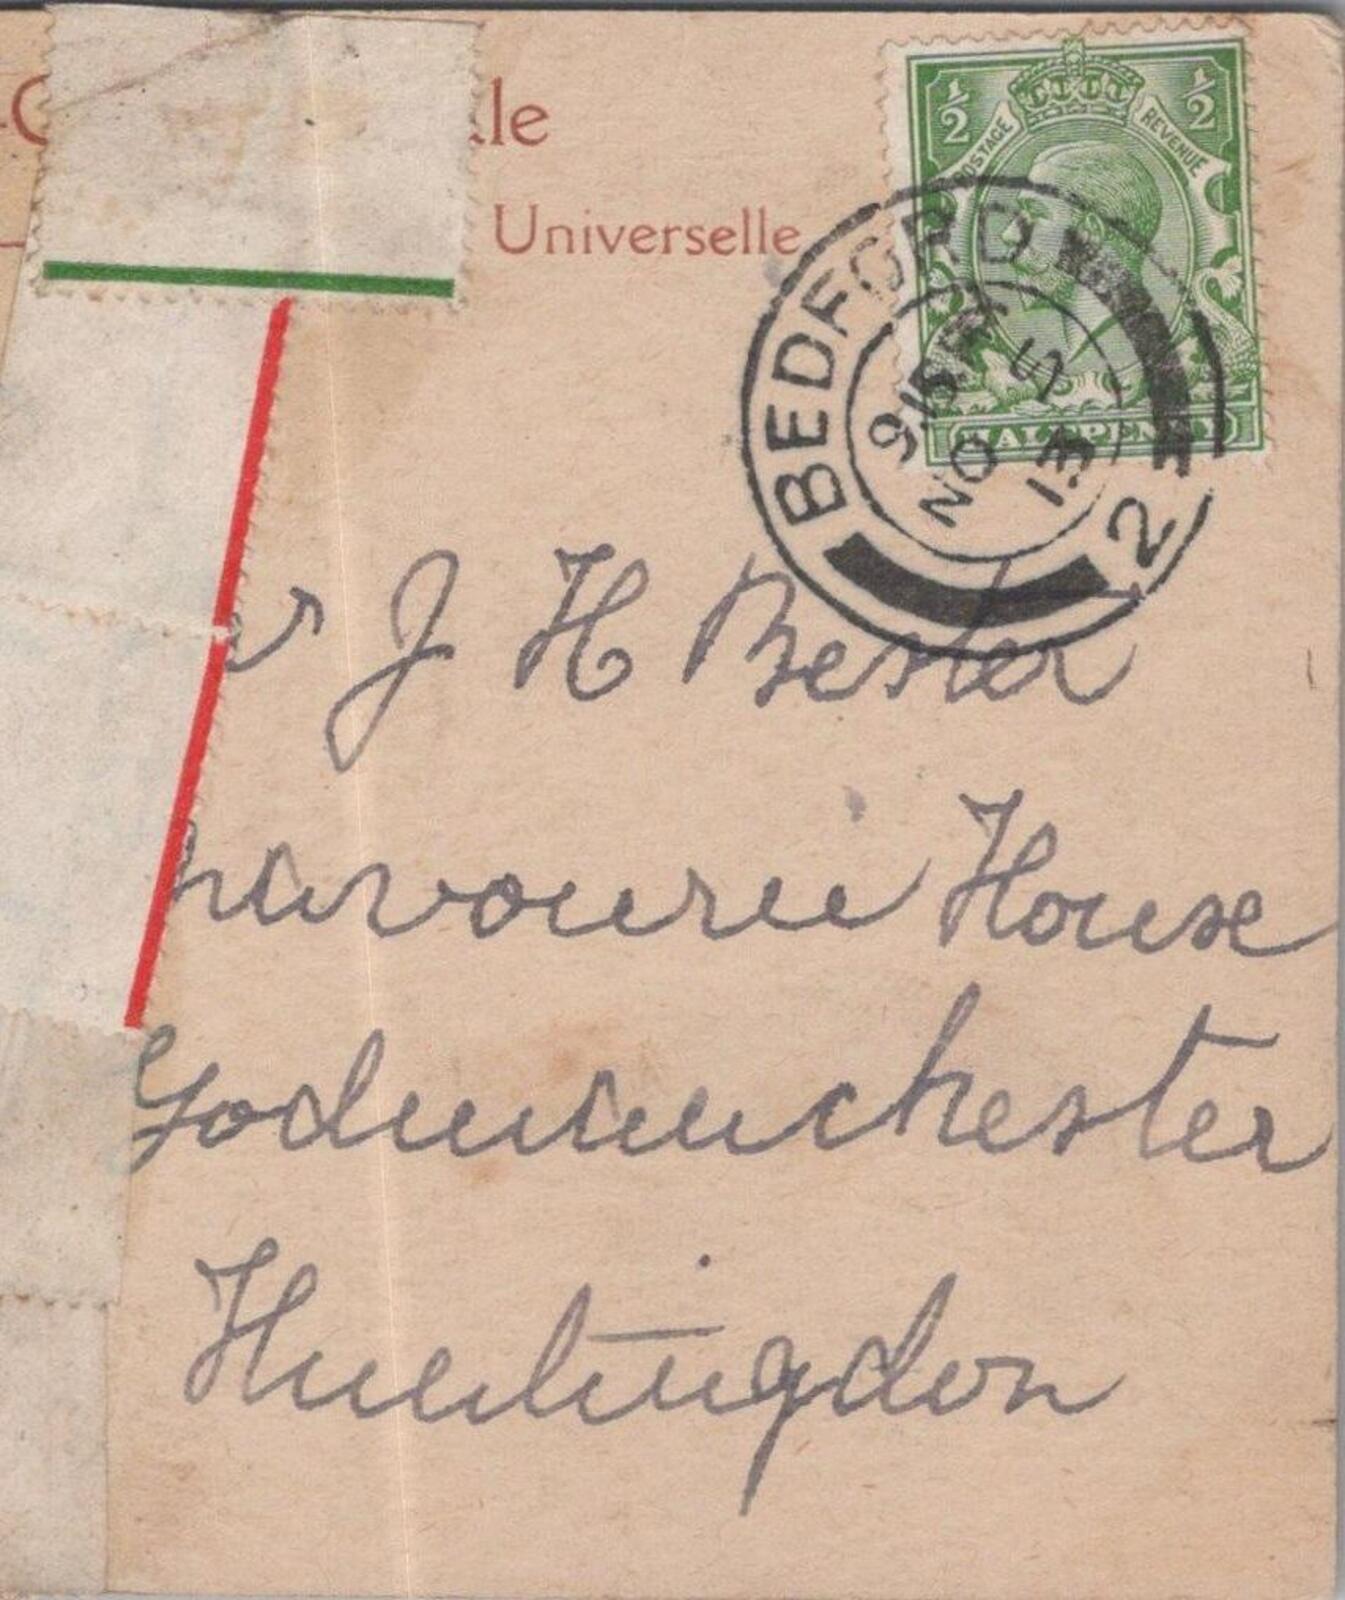 -C le
Universelle
½ ½
POSTAGE REVENUE
HALFPENNY
BEDFORD
9.15 PM
NO 5
13
12
r J H Bester
House
Godmanchester
Huntingdon